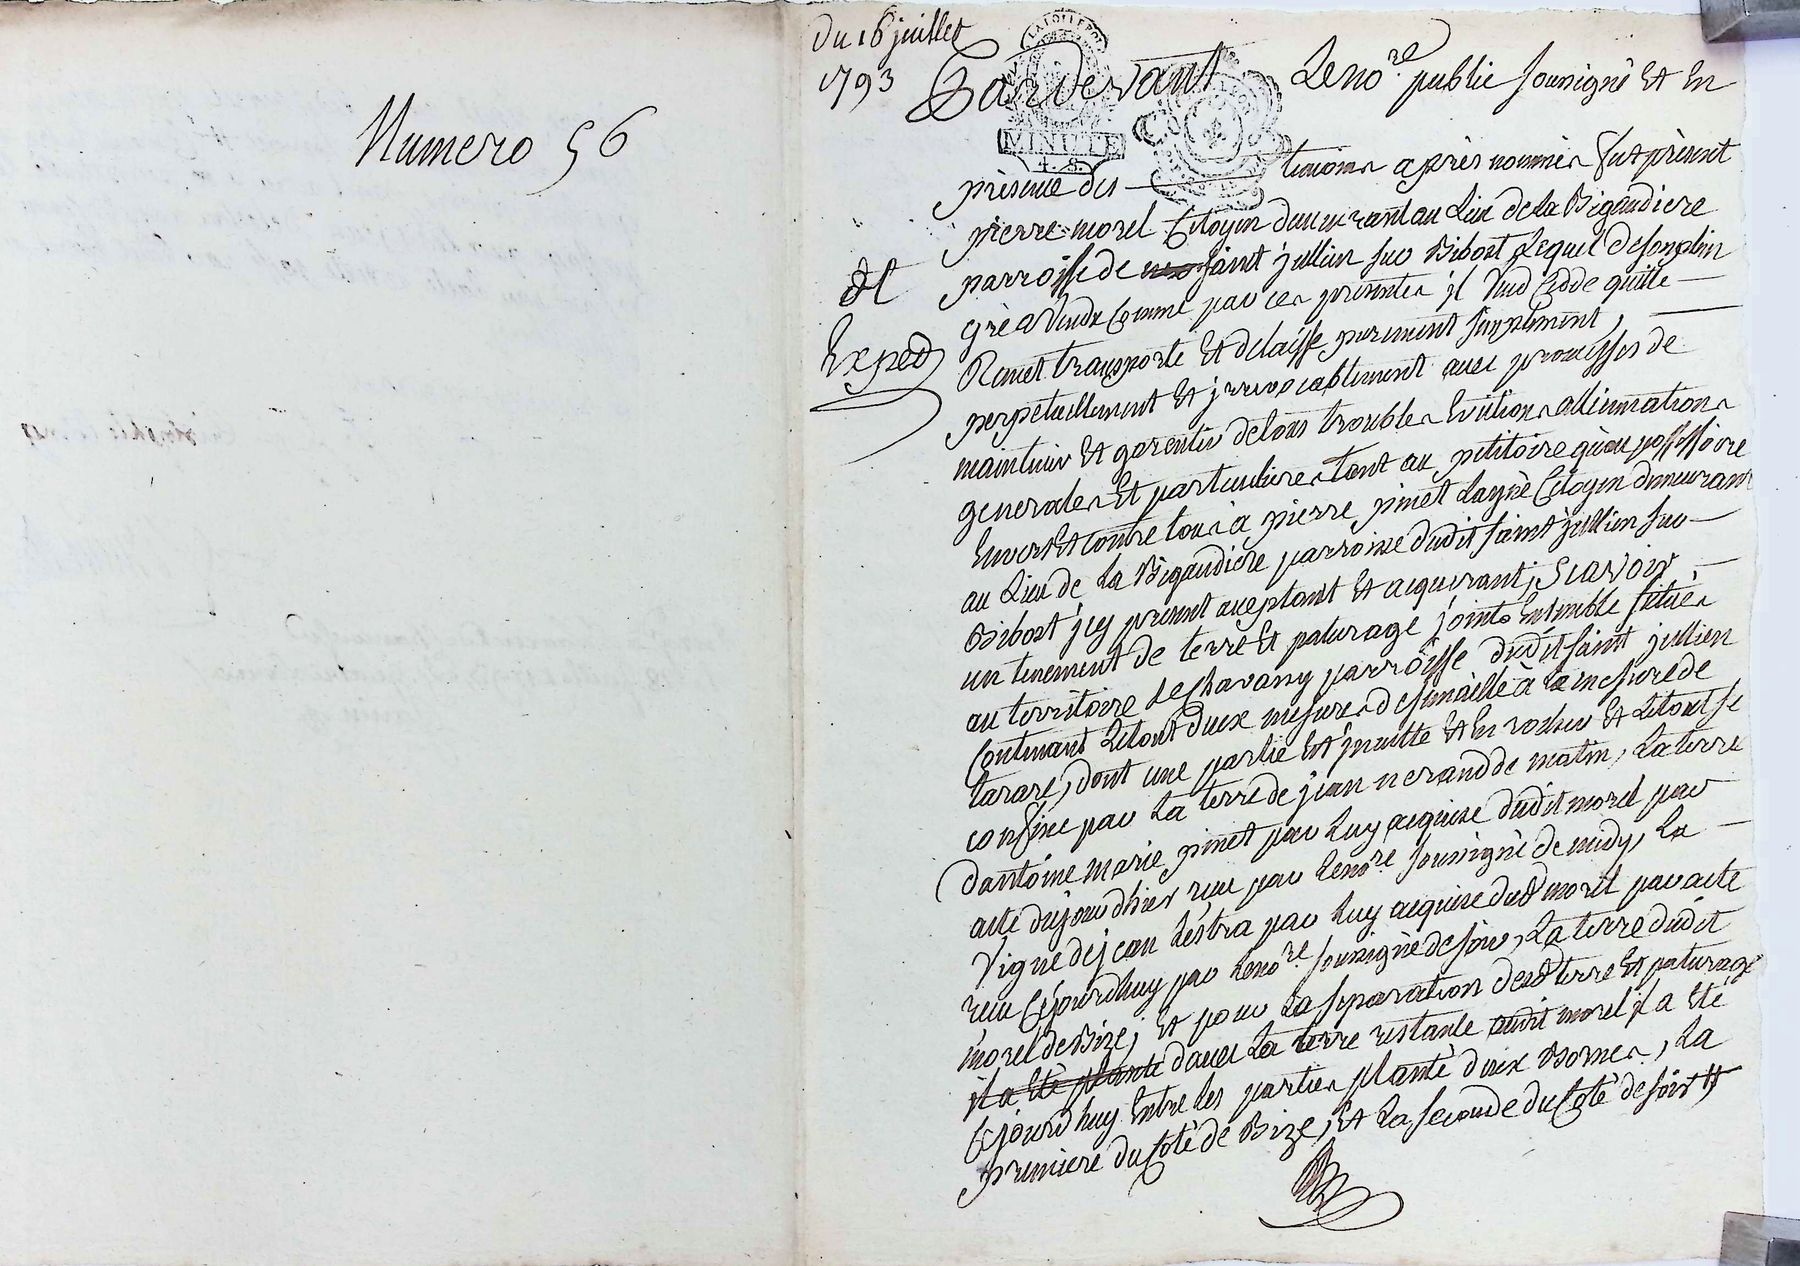 Numero 56
du 16 juillet
1793
Pardevant Le no.re public soussigné Et En
MINUTE
4. S.
présence des temoins après nommés fut présent
pierre morel Citoyen demeurant au Lieu de la Bigaudiere
parroisse de saint jullien sur Bibost Lequel de son plein
gré a vendu Comme par ces présentes il vend Cedde quitte
Et
Exped
Remet transporte Et delaisse purement simplement,
perpetuellement Et jrrevocablement avec promesses de
maintenir Et garentir de tous troubles Evictions allienations
generales Et particulieres tant au petitoire qu'au possessoire
Envers Et contre tous a pierre pinet Layné Citoyen demeurant
au Lieu de La Bigaudiere parroisse dudit saint jullien sur
Bibost jcy présent aceptant Et acquerant, Scavoir
un tenement de terre Et paturage joints Ensemble situés
au territoire de Chavany parroisse dudit saint jullien
Contenant Letout deux mesures de semaille à la mesure de
tarare, dont une partie Est jnculte Et En rocher Et Letout se
confine par La terre de jean nerand de matin, La terre
d'antoine marie pinet par Luy acquise dudit morel par
acte du jourdhier reçu par Leno.re soussigné de midy, La
Vigne de jean Lestra par Luy acquise dudt morel par acte
reçu Cejourdhuy par Leno.re soussigné de soir, La terre dudit
morel de Bize; Et pour La separation desdt terre Et paturage
il a Eté planté d'avec La terre restante audit morel il a Eté
Cejourdhuy Entre les parties planté deux Bornes, La
premiere du Coté de Bize, Et La seconde du Coté de soir Et